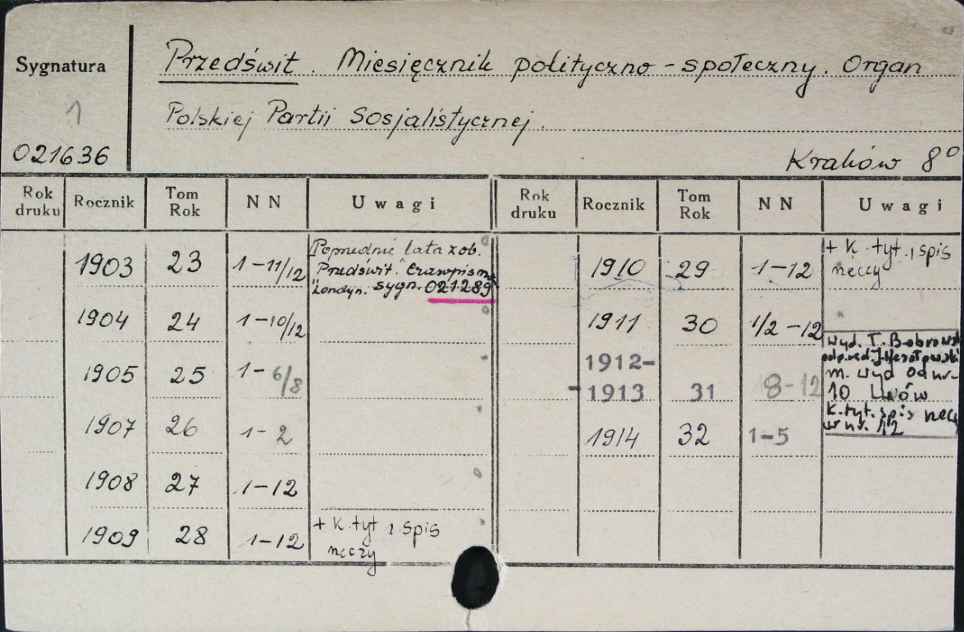 Sygnatura
1
021636
Przedświt. Miesięcznik polityczno-społeczny. Organ
Polskiej Partii Sosjalistycznej.
Kraków 8°
Rok druku Rocznik Tom Rok NN Uwagi Rok druku Rocznik Tom Rok NN Uwagi
1903 23 1-11/12
Poprzednie lata zob.
"Przedświt". Czasopismo
Londyn. sygn. 021289
1904 24 1-10/12
1905 25 1-6/8
1907 26 1-2
1908 27 1-12
1909 28 1-12 + K. tyt i spis
rzeczy
1910 29 1-12 + K. tyt. i spis
rzeczy
1911 30 1/2-12
1912-
-1913 31 8-12
wyd. T. Bobrowski
odp. red.
m. wyd od nr.
10 Lwów
K. tyt. spis rzeczy
w nr. 12
1914 32 1-5